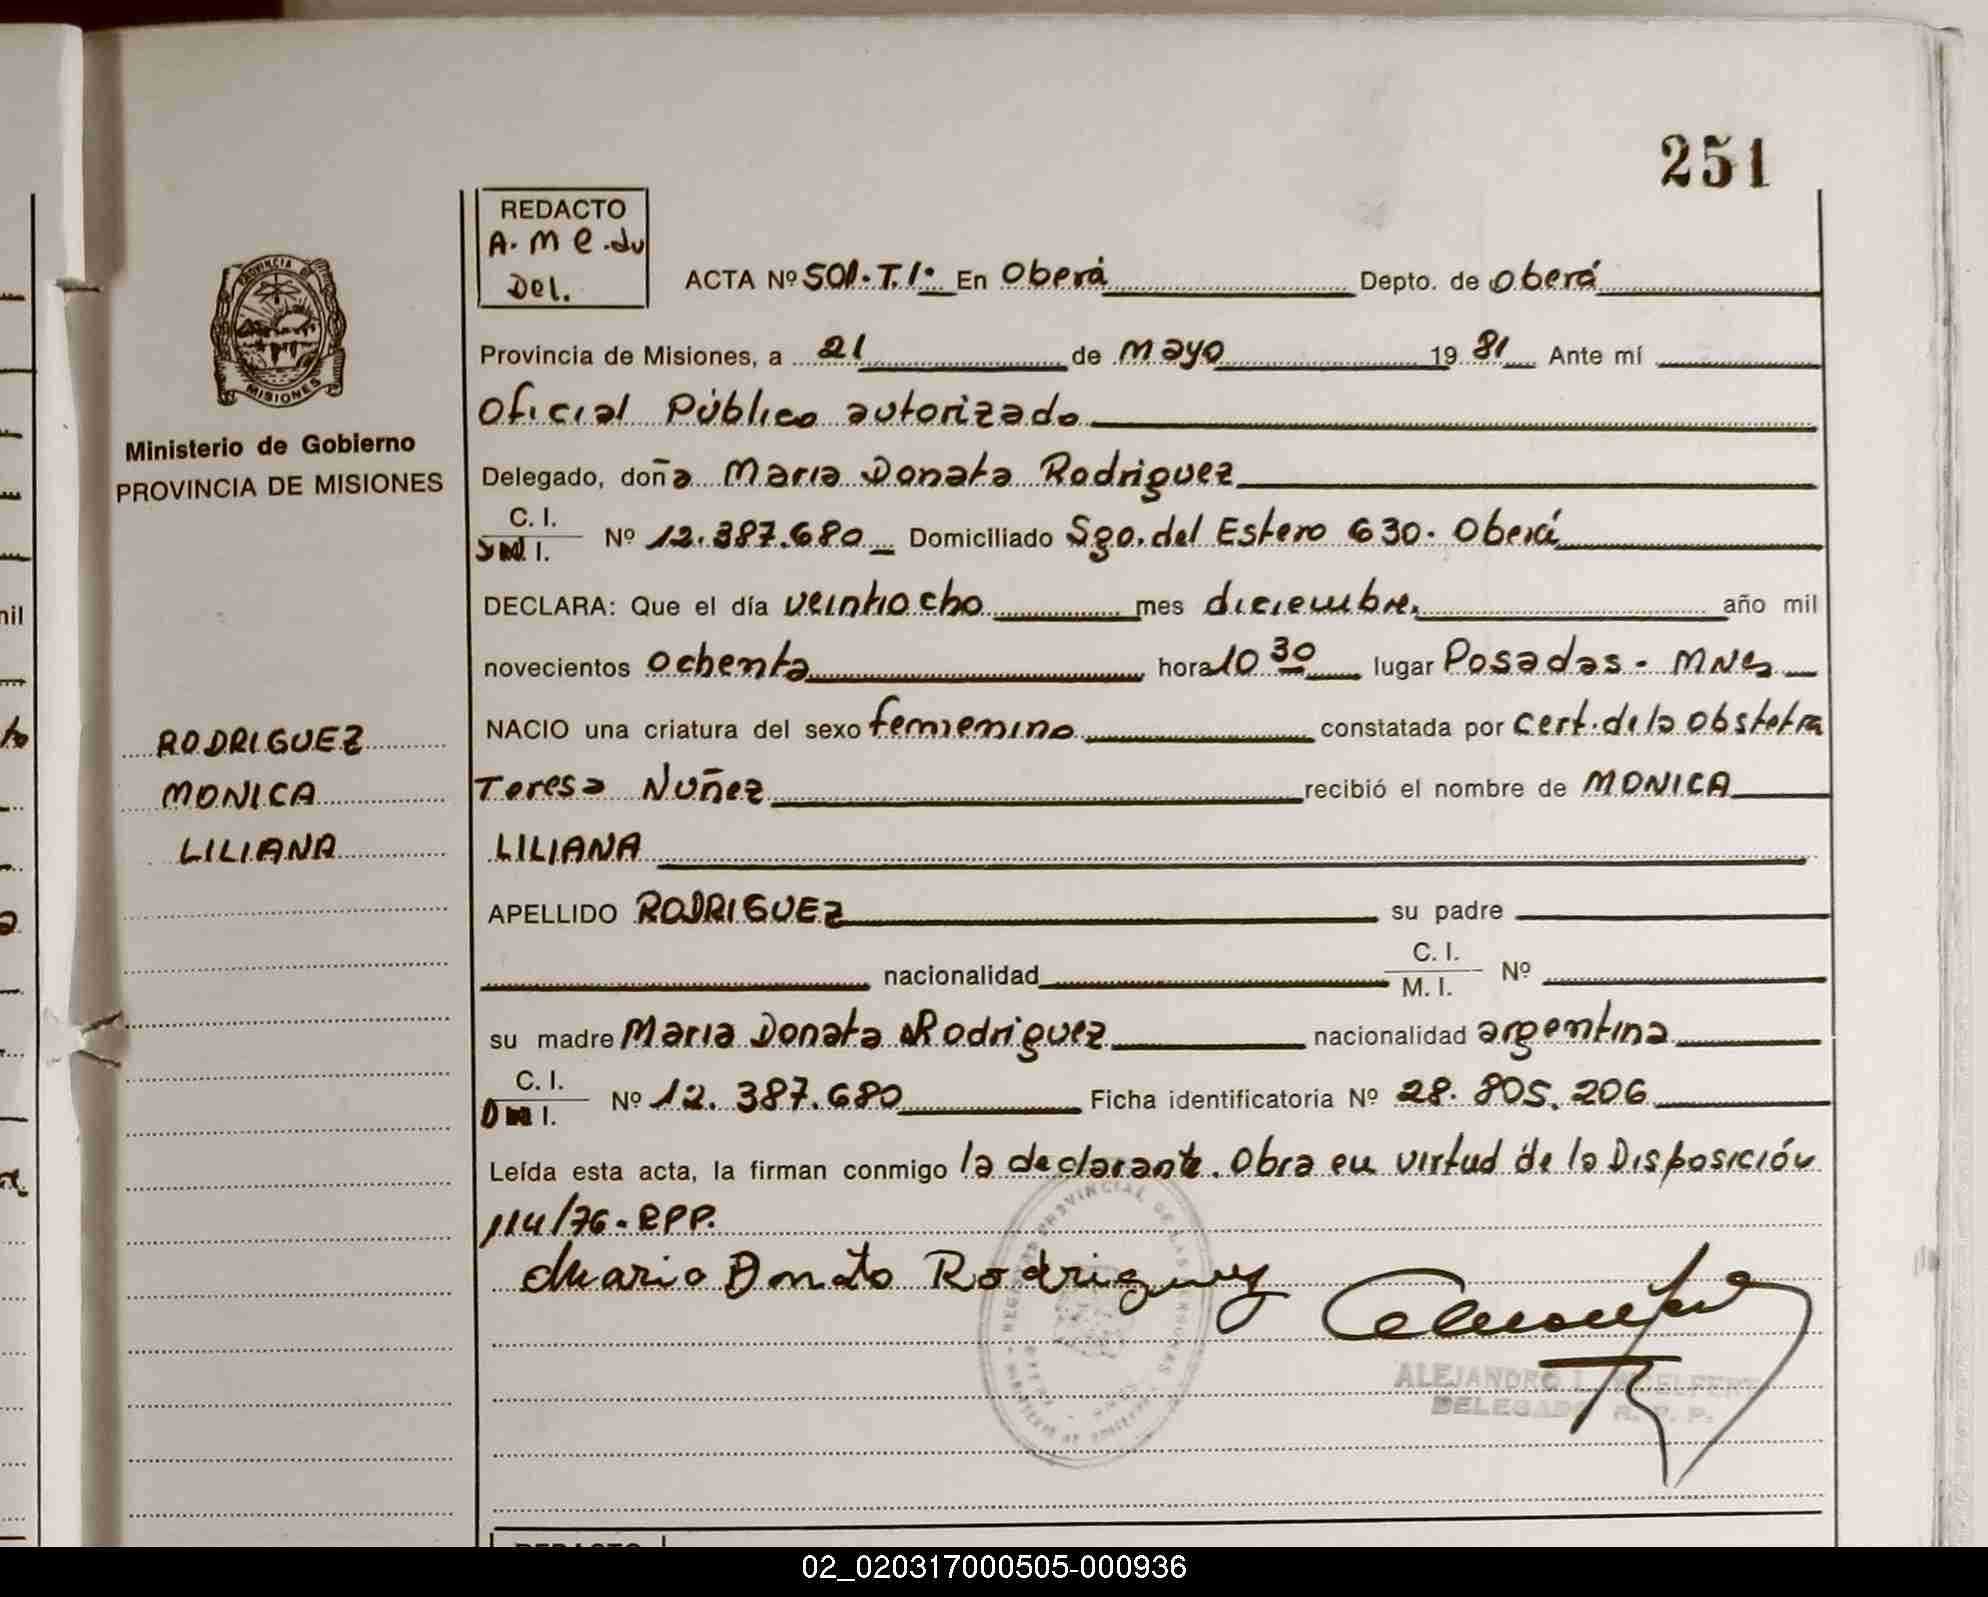 251
REDACTO
A. M e. du
Del.
ACTA Nº 501-T.1º En Oberá Depto. de Oberá
Provincia de Misiones, a 21 de mayo 19 81 Ante mí
Oficial Público autorizado
Delegado, doña Maria Donata Rodriguez
C. I.
Nº 12.387.680 Domiciliado Sgo. del Estero 630. Oberá
I.
DECLARA: Que el día veintiocho mes diciembre. año mil
novecientos ochenta hora 10 30 lugar Posadas - MNES
NACIO una criatura del sexo femienino constatada por cert. de la obstetra
Teresa Nuñez recibió el nombre de MONICA
LILIANA
APELLIDO RODRIGUEZ su padre
nacionalidad C. I. Nº
M. I.
su madre Maria Donata Rodriguez nacionalidad argentina
C. I.
Nº 12.387.680 Ficha identificatoria Nº 28.805.206
I.
Leída esta acta, la firman conmigo la declarante. Obra en virtud de la Disposición
114/76-RPP.
Maria Donata Rodriguez
ALEJANDRO L.
DELEGADO R. P. P.
PROVINCIA DE
MISIONES
Ministerio de Gobierno
PROVINCIA DE MISIONES
RODRIGUEZ
MONICA
LILIANA
02_020317000505-000936